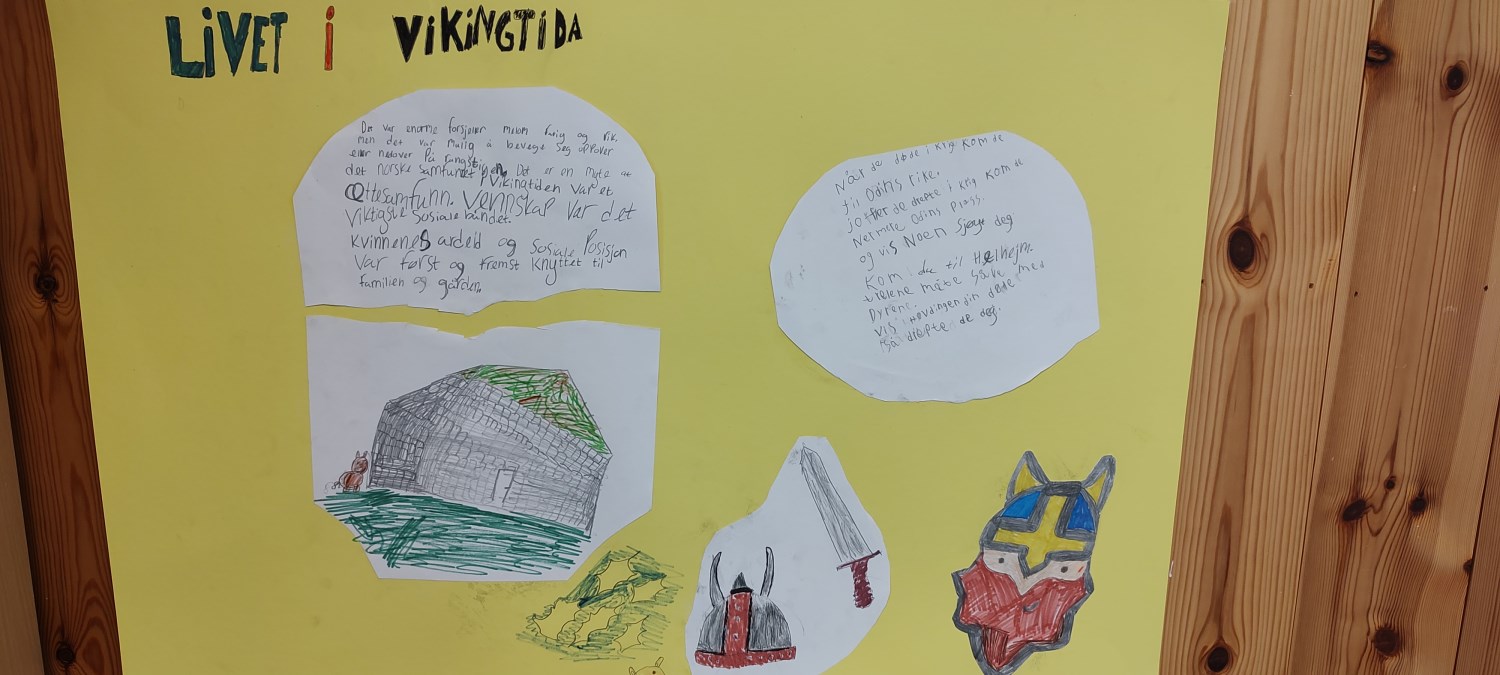 LiVET i ViKiNGTiDA
Det var enorme forsjeller melom farig og rik.
men det var mulig å bevege seg oppover
eller nedover på rangstigen
det norske samfunnet. Det er en myte at
I vikingtiden var et
ættesamfunn. Vennskap var det
viktigste sosiale båndet.
kvinnenes arbeid og sosiale Posisjon
var først og fremst knyttet til
familien og gården.
Når de døde i krig kom de
til Odins rike.
jo fler de drepte i krig kom de
Nermere Odins plass.
og vis Noen Sjøge deg
Kom du til Helhejm.
trelene måte såve med
Dyrene.
vis Høvdingen din døde
så drepte de deg.